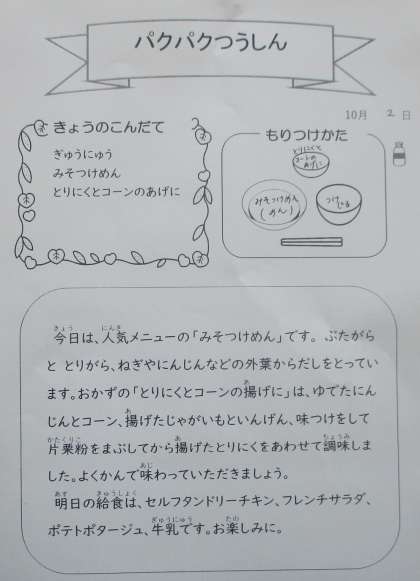 パクパクつうしん
10月 2 日
きょうのこんだて
ぎゅうにゅう
みそつけめん
とりにくとコーンのあげに
もりつけかた
とりにくと
コーンの
あげに
みそつけめん
(めん)
つけ
じる
今日は、人気メニューの「みそつけめん」です。ぶたがら
と とりがら、ねぎやにんじんなどの外葉からだしをとってい
ます。おかずの「とりにくとコーンの揚げに」は、ゆでたにん
じんとコーン、揚げたじゃがいもといんげん、味つけをして
片栗粉をまぶしてから揚げたとりにくをあわせて調味しま
した。よくかんで味わっていただきましょう。
明日の給食は、セルフタンドリーチキン、フレンチサラダ、
ポテトポタージュ、牛乳です。お楽しみに。